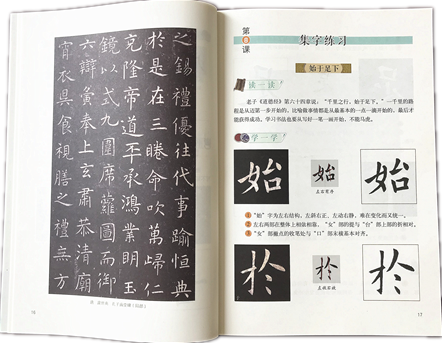 之錫禮優往代事踰恒典
於是在三睠命吹萬歸仁
克隆帝道丕承鴻業明玉
鏡以式九圍席蘿圖而御
六辯寅奉上玄肅恭清廟
宵衣昃食視膳之禮無方
16
集字练习
《始于足下》
读一读
老子《道德经》第六十四章说，“千里之行，始于足下。”一个里的路
程是从迈第一步开始的，比喻做事情都是从最基本的一点一滴开始的，最后才
能获得成功。学习书法也要从写好一笔一画开始，不能马虎。
学一学
始
始
左右窄齐
始
①“始”字为左右结构，左斜右正、左动右静，难在变化而又统一。
②左右两部在整体上相依相靠，“女”部的提与“台”部上部的折相对。
③“女”部撇点的收笔处与“口”部末横基本对齐。
於
於
於
17